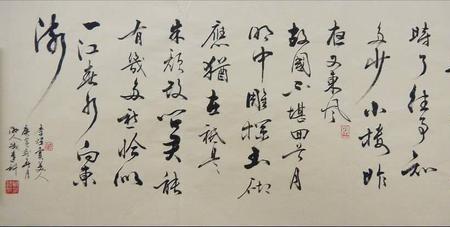 時了往事知
多少小楼昨
夜又東風
故國不堪回首月
明中雕欄玉砌
應猶在祗是
朱颜改问君能
有幾多愁恰似
一江春水向東
流
李煜虞美人